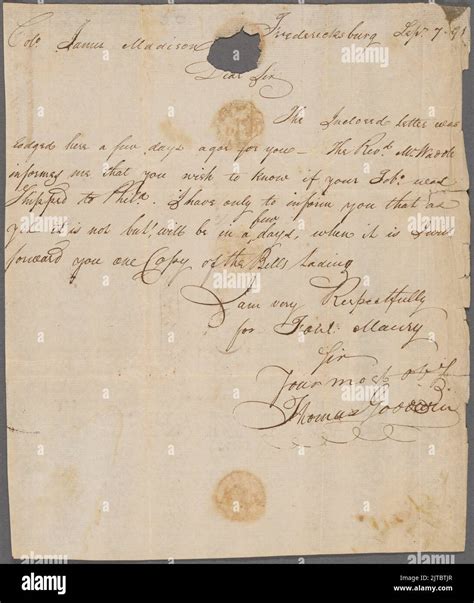 Fredericksburg Sepr 7. 91
Colo James Madison
Dear Sir
The Inclosed letter was
lodged here a few days agoe for you — The Revd Mr Waddle
informes me that you wish to know if your Tobo was
Shipped to Phila. I have only to inform you that as
yet it is not but will be in a few days, when it is I will
forward you one Copy of the Bills Lading
I am very Respectfully
for Fontn Maury
Sir
Your most Obt
Thomas Goodwin
alamy
Image ID: 2JTBTJR
www.alamy.com